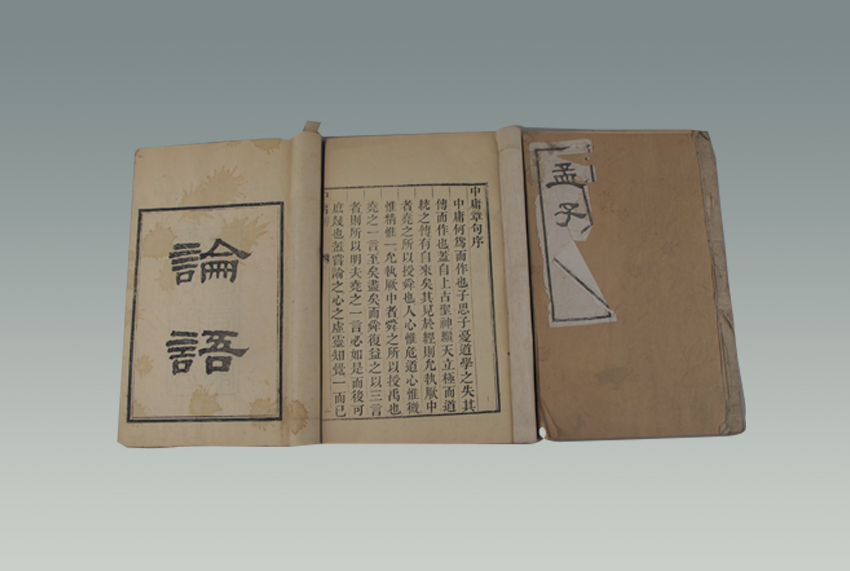 論語
中庸章句序
中庸何爲而作也子思子憂道學之失其
傳而作也蓋自上古聖神繼天立極而道
統之傳有自來矣其見於經則允執厥中
者堯之所以授舜也人心惟危道心惟微
惟精惟一允執厥中者舜之所以授禹也
堯之一言至矣盡矣而舜復益之以三言
者則所以明夫堯之一言必如是而後可
庶幾也蓋嘗論之心之虛靈知覺一而已
孟子